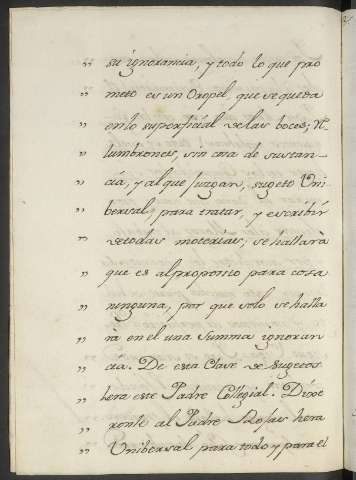 " su ignorancia, y todo lo que pro
" meto es un Oropel que se queda
" en lo superficial de las boces, vis
" lumbrones, sin cosa de sustan-
" cia, y al que juzgan, sugeto Uni
" bersal, para tratar, y escribir
" de todas materias, se hallarà
" que es al proposito para cosa
" ninguna, por que solo se halla
" rà en el una Summa ignoran
" cia. De esta Clase de Sugetos
" hera este Padre Collegial. Dixe
" ronle al Padre Rosas hera
" Unibersal para todo y para el